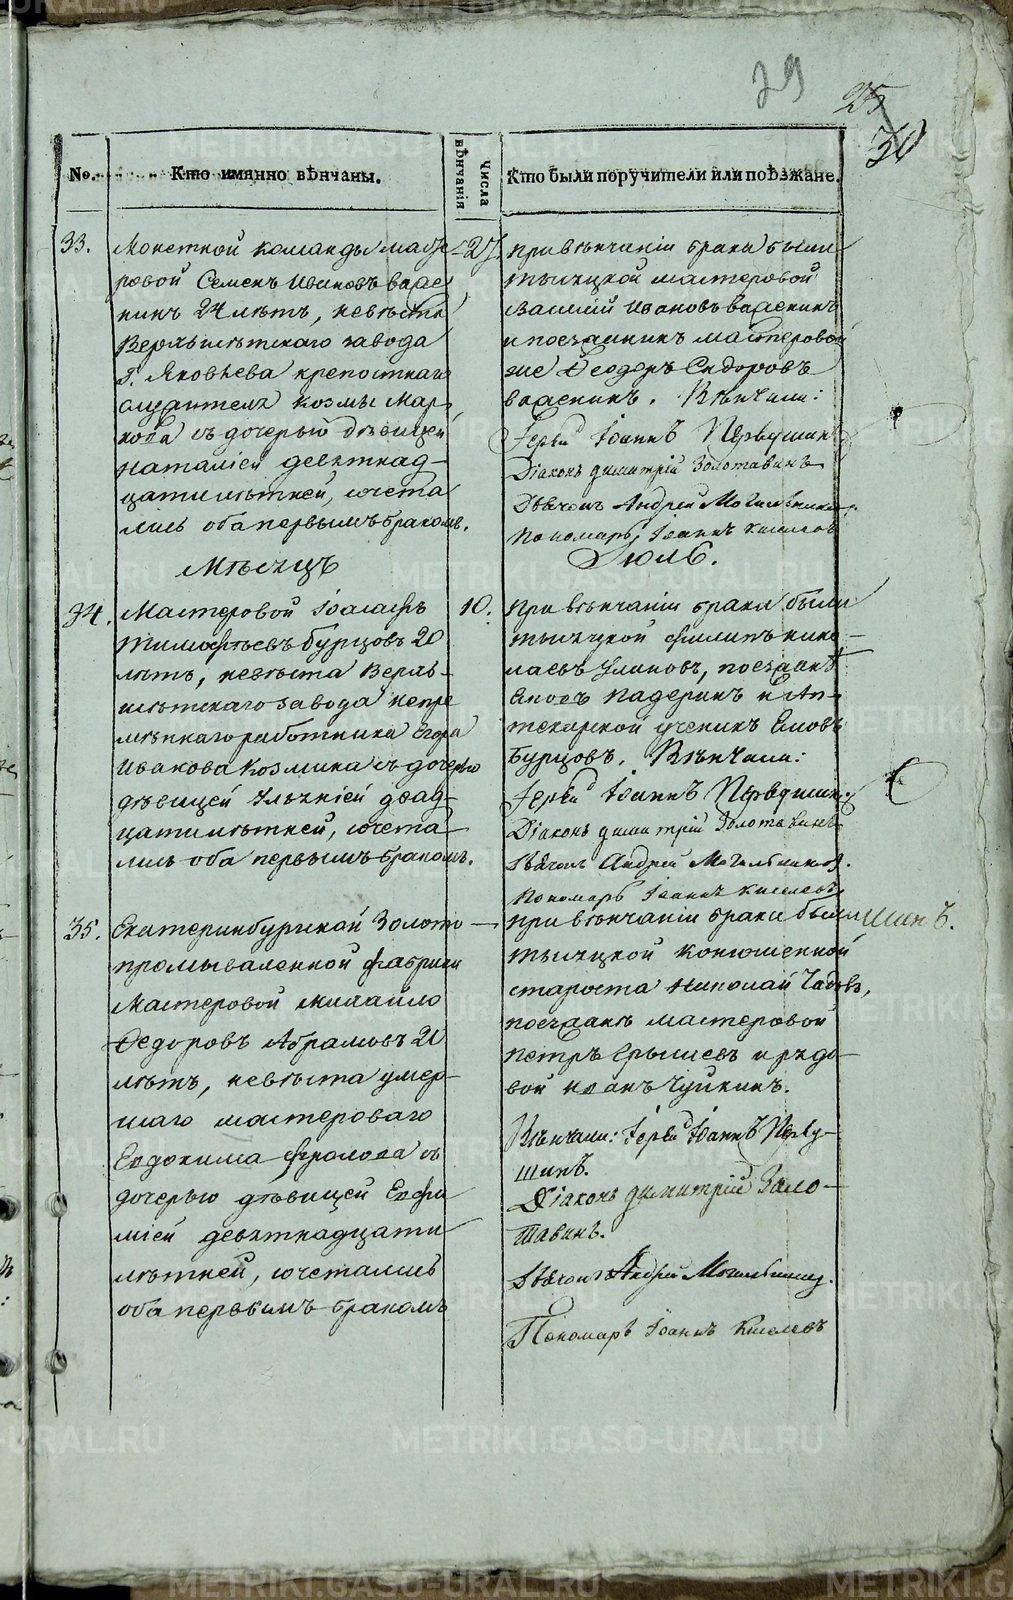 29
25
30
№. Кто имянно вѣнчаны. Числа вѣнчанія Кто были поручители или поѣзжане.
33. Монетной команды масте
ровой Семенъ Ивановъ
24 лѣтъ, невѣста
Верхъисетскаго завода
Г. Яковлева крепостнаго
служителя Козмы Мар
кова съ дочерью дѣвицей
Наталіей девятнад-
цатилѣтней, сочета
лись оба первымъ бракомъ.
27.
При вѣнчаніи брака были
тысяцкой мастеровой
Василий Ивановъ
и поезжанинъ мастеровой
же Феодоръ Сидоровъ
Вѣнчали:
Іерей Іоаннъ Первушинъ
Діаконъ Димитрій Золотавинъ
Дьячокъ Андрей Могильников
Пономарь Іоаннъ Киселевъ
Мѣсяцъ Іюль.
34. Мастеровой Іоасафъ
Тимофѣевъ Бурцовъ 20
лѣтъ, невѣста Верхъ-
исетскаго завода непре
мѣннаго работника Егора
Иванова Козмина съ дочерью
дѣвицей Ульяніей двад-
цатилѣтней, сочета
лись оба первымъ бракомъ.
10.
При вѣнчаніи брака были
тысяцкой Филипъ Нико-
лаевъ Улановъ, поезжанѣ
Падеринъ и Ап-
текарской ученикъ
Бурцовъ. Вѣнчали:
Іерей Іоаннъ Первушин.
Діаконъ Димитрій Золотавинъ
Дьячокъ Андрей Могильников.
Пономарь Іоаннъ Киселевъ
35. Екатеринбургской Золото
промываленной фабрики
Мастеровой Михайло
Федоровъ Абрамовъ 20
лѣтъ, невѣста умер-
шаго мастероваго
Евдокима Фролова съ
дочерью дѣвицей Евфи
міей девятнадцати
лѣтней, сочетались
оба первымъ бракомъ
—
При вѣнчаніи брака были
тысяцкой конюшенной
староста Николай
поезжанѣ мастеровой
Петръ Ерышевъ и рядо-
вой Иванъ Чуйкинъ.
Вѣнчали: Іерей Іоаннъ Перву-
шинъ.
Діаконъ Димитрій Золо-
тавинъ.
Дьячокъ Андрей Могильников.
Пономарь Іоаннъ Киселевъ
шинъ.
METRIKI.GASO-URAL.RU